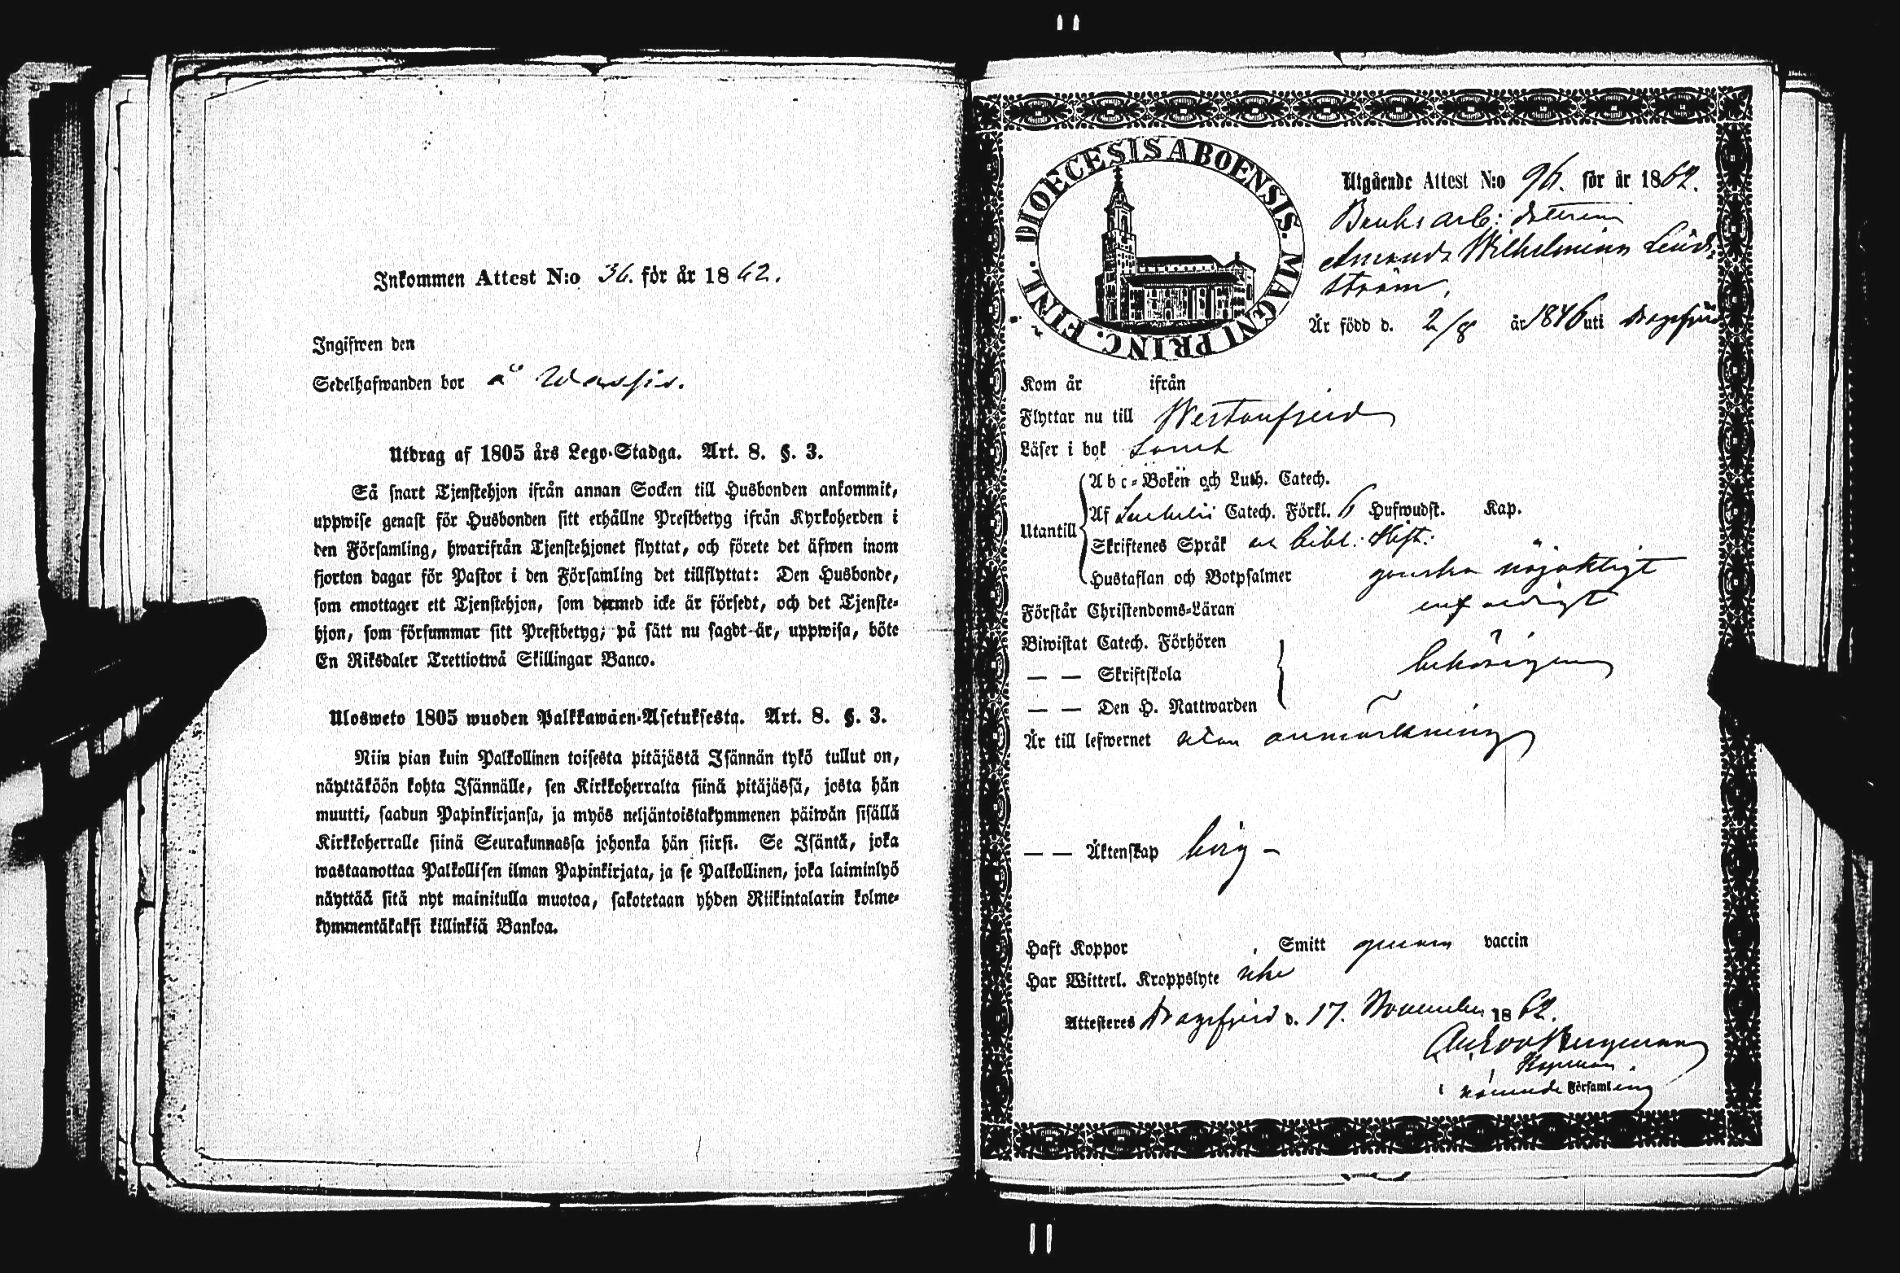 Inkommen Attest N:o 36. för år 1862.
Ingifwen den
Sedelhafwanden bor å Wassis.
Utdrag af 1805 års Lego-Stadga. Art. 8. §. 3.
Så snart Tjenstehjon ifrån annan Socken till Husbonden ankommit,
uppwise genast för Husbonden sitt erhållne Prestbetyg ifrån Kyrkoherden i
den Församling, hwarifrån Tjenstehjonet flyttat, och förete det äfwen inom
fjorton dagar för Pastor i den Församling det tillflyttat: Den Husbonde,
som emottager ett Tjenstehjon, som dermed icke är försedt, och det Tjenste-
hjon, som försummar sitt Prestbetyg, på sätt nu sagdt är, uppwisa, böte
En Riksdaler Trettiotwå Skillingar Banco.
Ulosweto 1805 wuoden Palkkawäen-Asetuksesta. Art. 8. §. 3.
Niin pian kuin Palkollinen toisesta pitäjästä Isännän tykö tullut on,
näyttäköön kohta Isännälle, sen Kirkkoherralta siinä pitäjässä, josta hän
muutti, saadun Papinkirjansa, ja myös neljäntoistakymmenen päiwän sisällä
Kirkkoherralle siinä Seurakunnassa johonka hän siirsi. Se Isäntä, joka
wastaanottaa Palkollisen ilman Papinkirjata, ja se Palkollinen, joka laiminlyö
näyttää sitä nyt mainitulla muotoa, sakotetaan yhden Riikintalarin kolme-
kymmentäkaksi killinkiä Bankoa.
DIOECESIS ABOENSIS. MAGNI PRINC. FINL.
Utgående Attest N:o 96. för år 1862.
Bruks arb: dottren
Amanda Wilhelmina Lind-
ström,
Är född d. 2/8 år 1846 uti Dragsfjärd
Kom år ifrån
Flyttar nu till Westanfjerd
Läser i bok
Abc-Boken och Luth. Catech.
Utantill
Af Catech. Förkl. 6 Hufwudst. Kap.
Skriftenes Språk o bibl: Hist:
Hustaflan och Botpsalmer ganska nöjaktigt
Förstår Christendoms-Läran enfaldigt
Biwistat Catech. Förhören
— — Skriftskola behörigen
— — Den H. Nattwarden
Är till lefwernet utan anmärkning
— — Äktenskap ledig -
Haft Koppor Smitt genom vaccin
Har Witterl. Kroppslyte icke
Attesteras Dragsfjerd d. 17. November 1862.
Bergman
Kapellan
i nämnde Församling